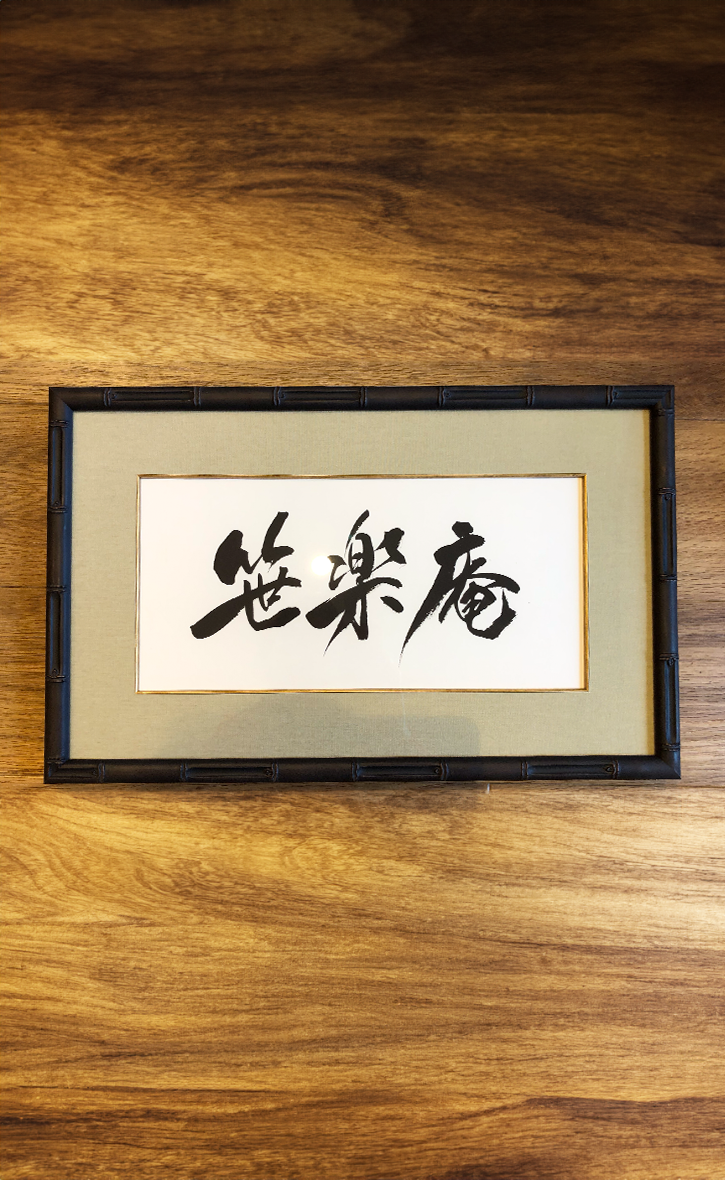 笹楽庵